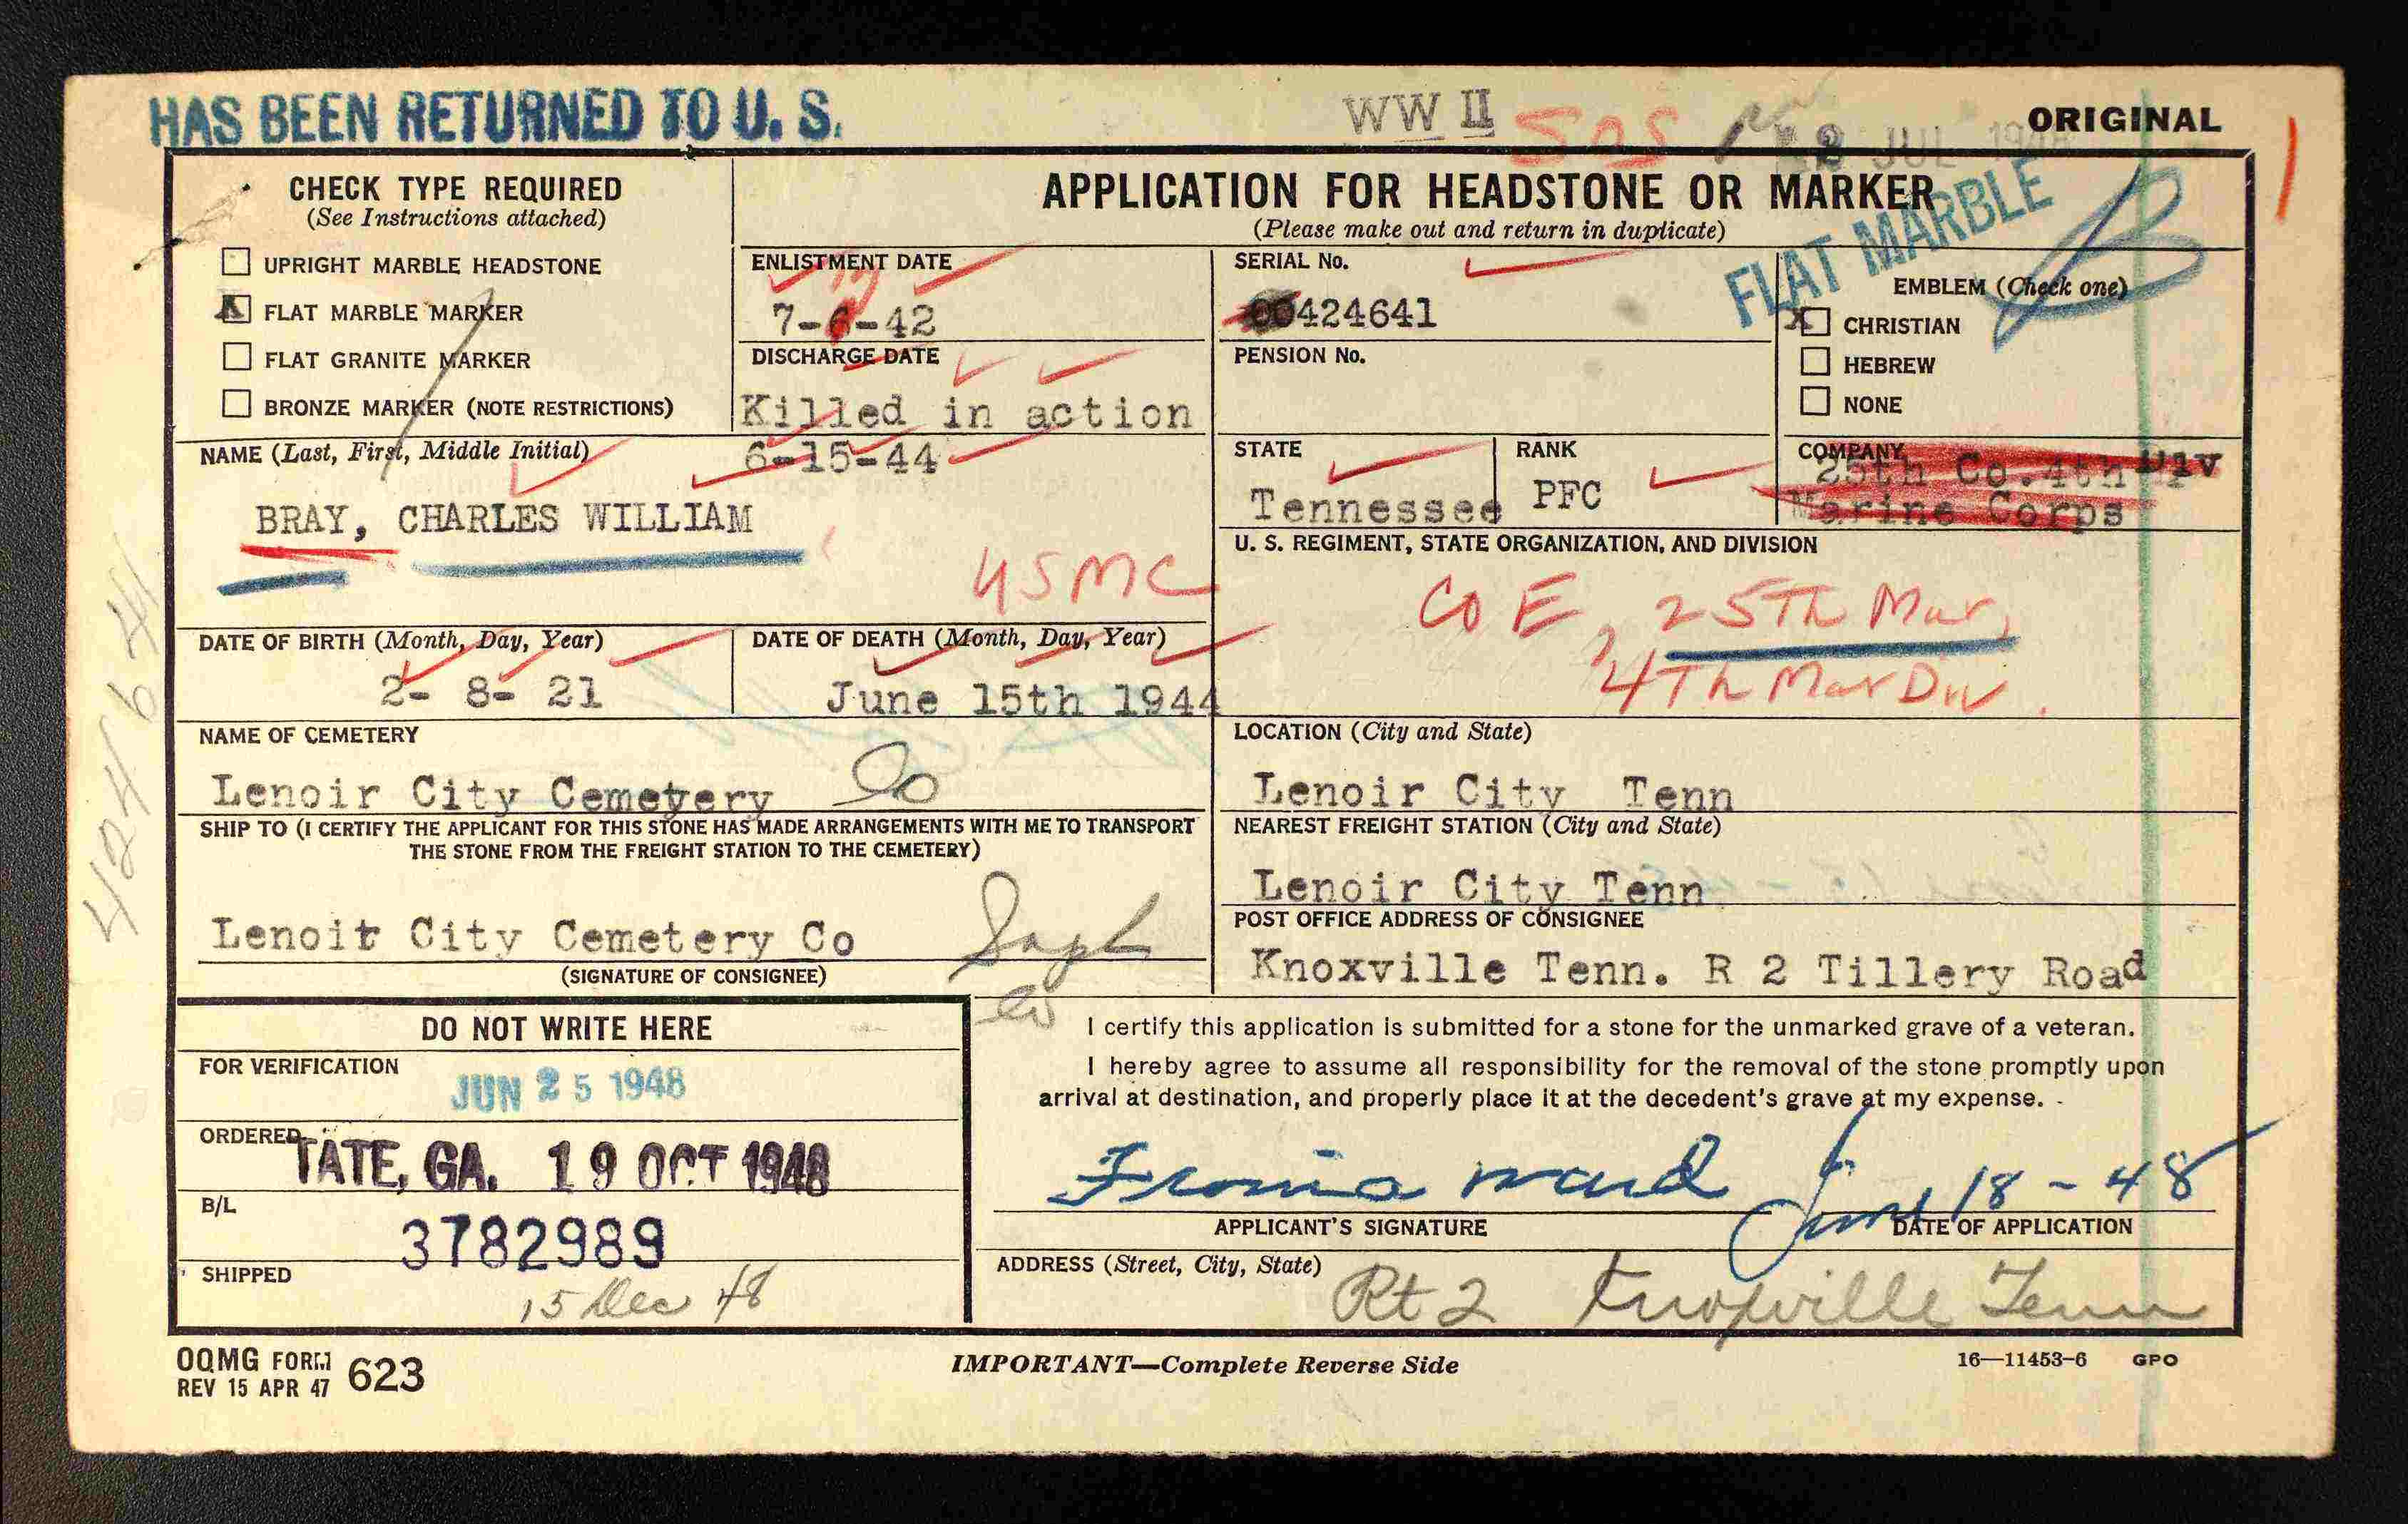 HAS BEEN RETURNED TO U. S.
WW II
SOS
JUL 1948
ORIGINAL
CHECK TYPE REQUIRED
(See Instructions attached)
UPRIGHT MARBLE HEADSTONE
X FLAT MARBLE MARKER
FLAT GRANITE MARKER
BRONZE MARKER (NOTE RESTRICTIONS)
APPLICATION FOR HEADSTONE OR MARKER
(Please make out and return in duplicate)
FLAT MARBLE
B
ENLISTMENT DATE
7-6-42
DISCHARGE DATE
Killed in action
6-15-44
SERIAL No.
00424641
PENSION No.
EMBLEM (Check one)
X CHRISTIAN
HEBREW
NONE
NAME (Last, First, Middle Initial)
BRAY, CHARLES WILLIAM
USMC
STATE
Tennessee
RANK
PFC
COMPANY
25th Co. 4th Div
Marine Corps
U. S. REGIMENT, STATE ORGANIZATION, AND DIVISION
Co E, 25Th Mar,
4Th Mar Div.
DATE OF BIRTH (Month, Day, Year)
2- 8- 21
DATE OF DEATH (Month, Day, Year)
June 15th 1944
NAME OF CEMETERY
Lenoir City Cemetery Co
LOCATION (City and State)
Lenoir City Tenn
SHIP TO (I CERTIFY THE APPLICANT FOR THIS STONE HAS MADE ARRANGEMENTS WITH ME TO TRANSPORT
THE STONE FROM THE FREIGHT STATION TO THE CEMETERY)
Lenoir City Cemetery Co
(SIGNATURE OF CONSIGNEE)
NEAREST FREIGHT STATION (City and State)
Lenoir City Tenn
POST OFFICE ADDRESS OF CONSIGNEE
Knoxville Tenn. R 2 Tillery Road
424641
DO NOT WRITE HERE
FOR VERIFICATION
JUN 25 1948
ORDERED
TATE, GA. 19 OCT 1948
B/L
3782989
SHIPPED
15 Dec 48
I certify this application is submitted for a stone for the unmarked grave of a veteran.
I hereby agree to assume all responsibility for the removal of the stone promptly upon
arrival at destination, and properly place it at the decedent's grave at my expense.
Fronia Ward June 18-48
APPLICANT'S SIGNATURE
DATE OF APPLICATION
ADDRESS (Street, City, State)
Rt 2 Knoxville Tenn
OQMG FORM 623
REV 15 APR 47
IMPORTANT—Complete Reverse Side
16—11453-6 GPO